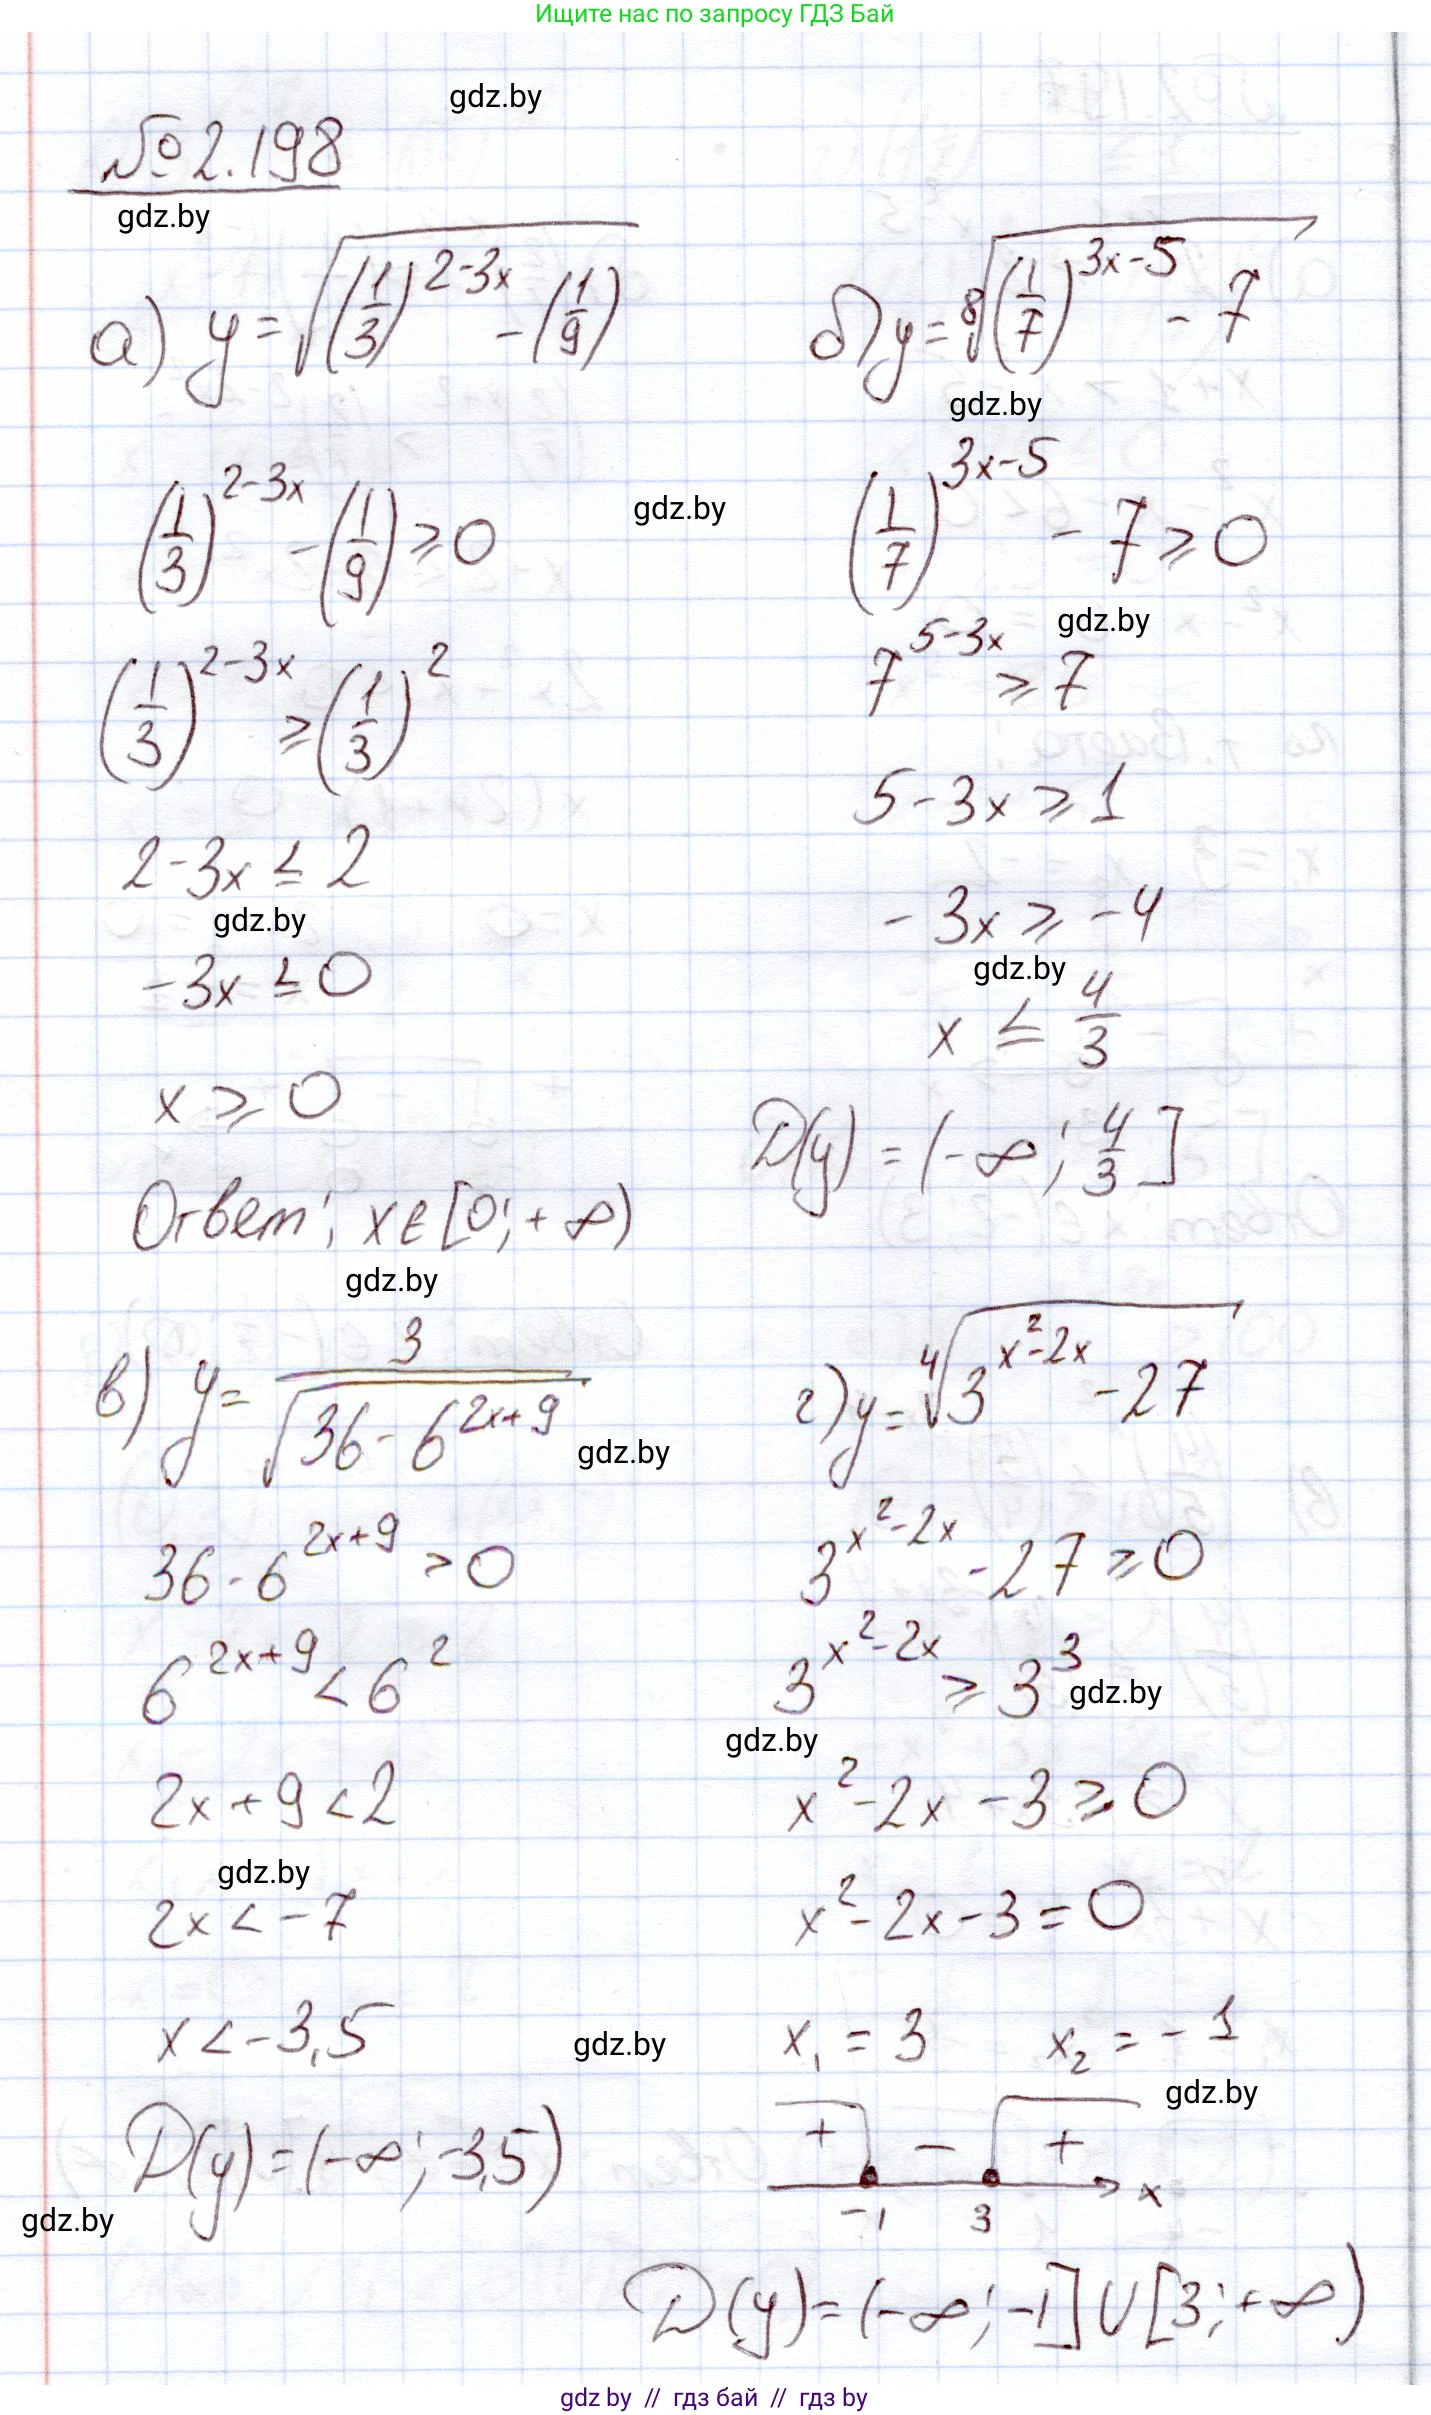 Ищите нас по запросу ГДЗ Бай
gdz.by
№ 2.198
gdz.by
а) y = √((1/3)^(2-3x) - (1/9))
(1/3)^(2-3x) - (1/9) ⩾ 0
gdz.by
(1/3)^(2-3x) ⩾ (1/3)^2
2-3x ≤ 2
gdz.by
-3x ≤ 0
x ⩾ 0
Ответ: x∈[0;+∞)
gdz.by
б) y = ⁸√((1/7)^(3x-5) - 7)
gdz.by
(1/7)^(3x-5) - 7 ⩾ 0
gdz.by
7^(5-3x) ⩾ 7
5-3x ⩾ 1
-3x ⩾ -4
gdz.by
x ≤ 4/3
D(y) = (-∞; 4/3]
в) y = 3/√(36-6^(2x+9))
gdz.by
36-6^(2x+9) > 0
6^(2x+9) < 6^2
2x+9 < 2
gdz.by
2x < -7
x < -3,5
gdz.by
D(y) = (-∞; -3,5)
gdz.by
г) y = ⁴√(3^(x²-2x) - 27)
3^(x²-2x) - 27 ⩾ 0
3^(x²-2x) ⩾ 3^3
gdz.by
gdz.by
x²-2x-3 ⩾ 0
x²-2x-3 = 0
x₁ = 3 x₂ = -1
gdz.by
+ - +
-1 3 x
D(y) = (-∞; -1] U [3; +∞)
gdz by // гдз бай // гдз by